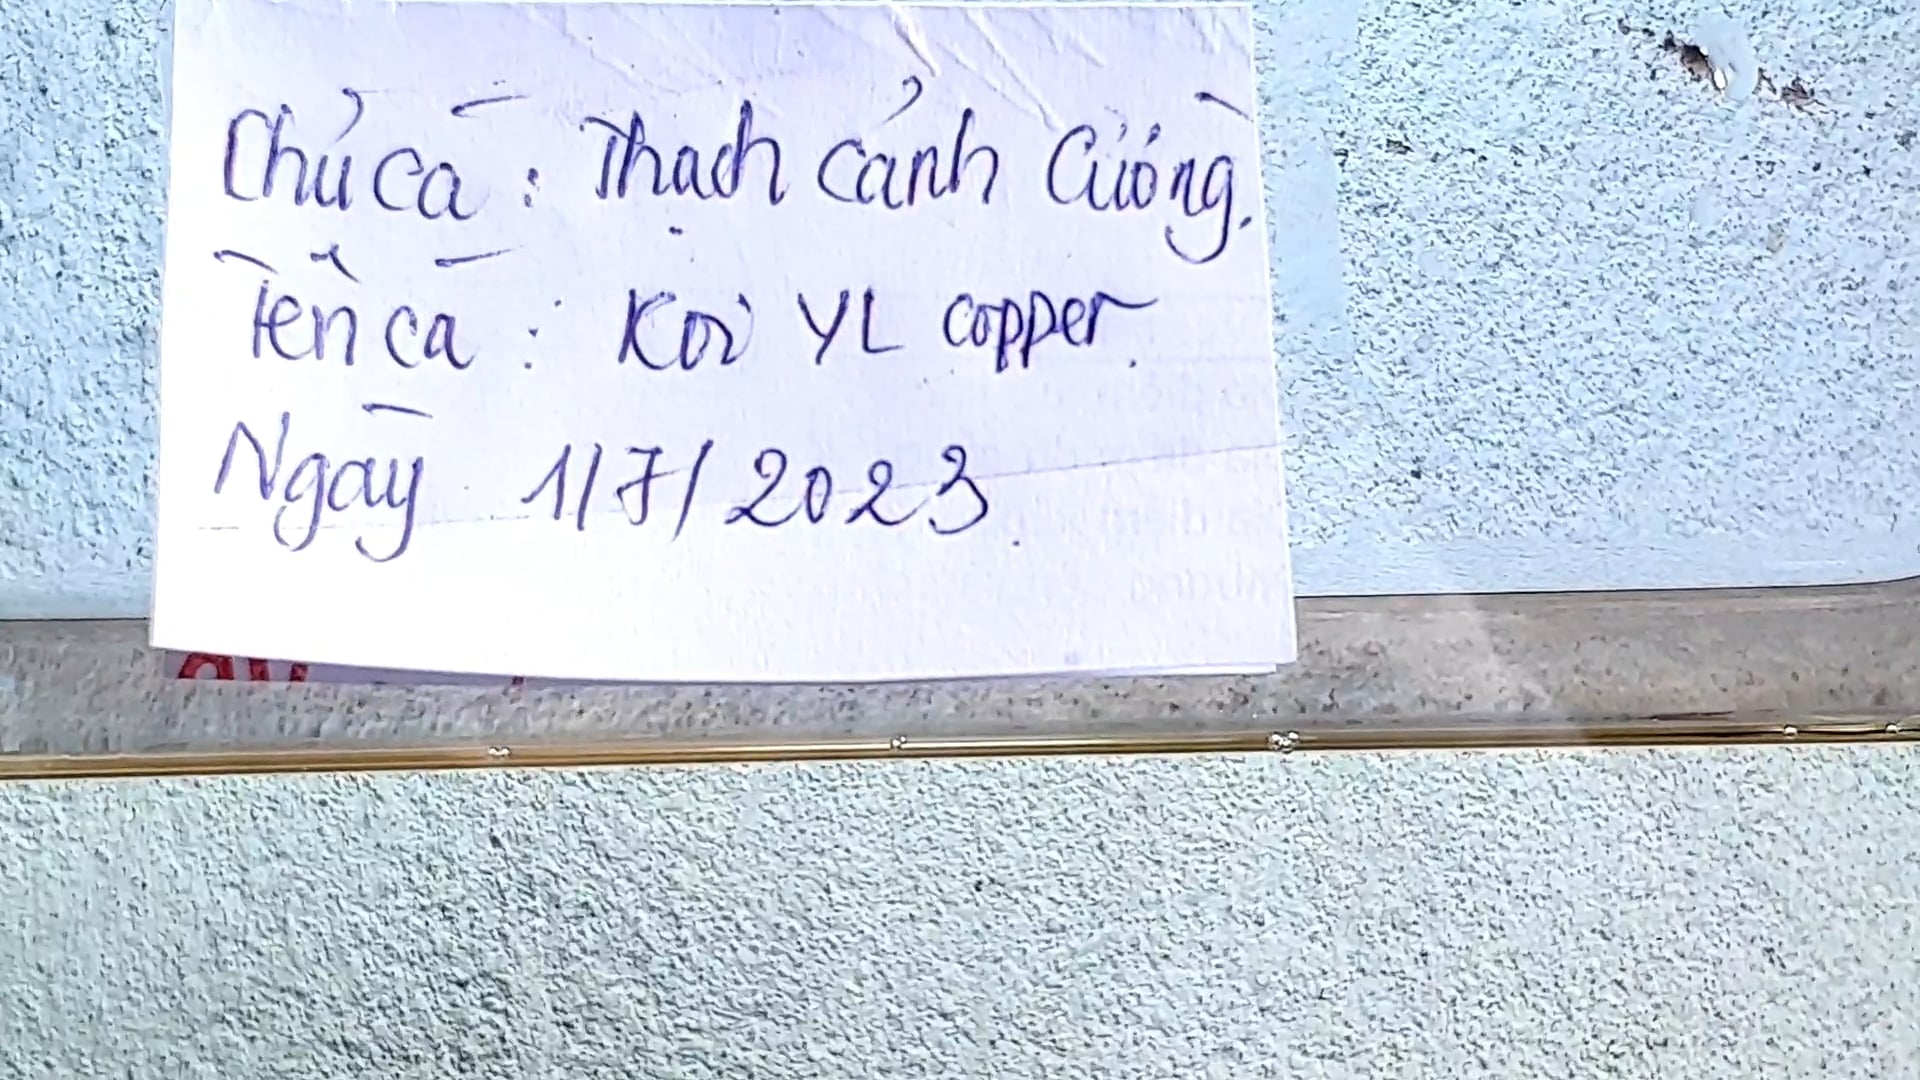 Chủ cá : Thạch cảnh Cường.
Tên cá : Koi YL copper.
Ngày 1/7/2023.